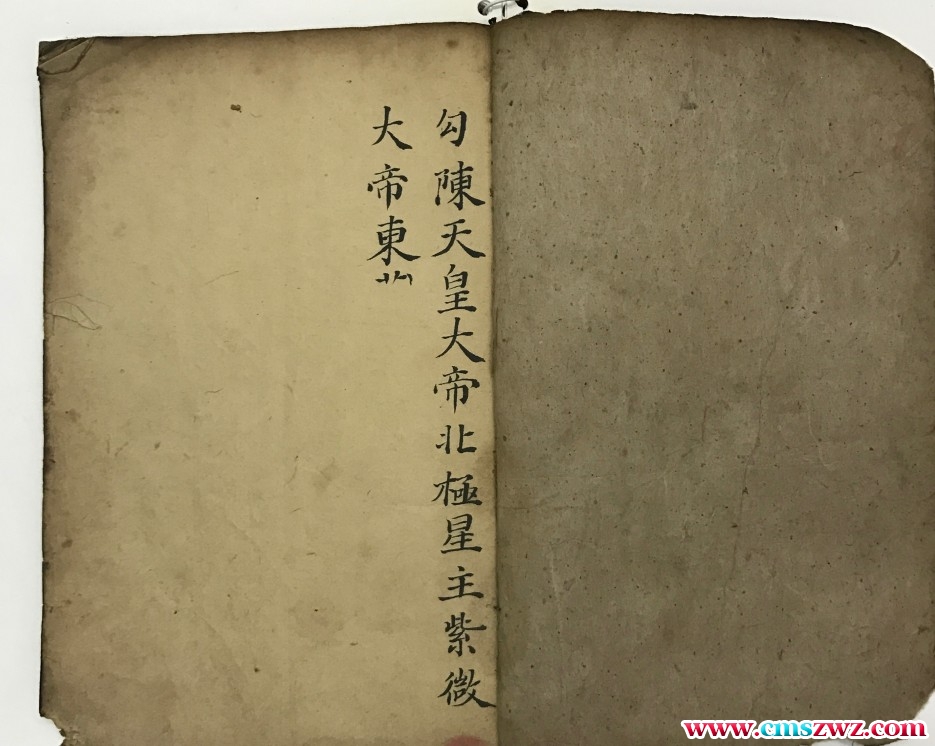 勾陳天皇大帝北極星主紫微
大帝東
www.cmszwz.com